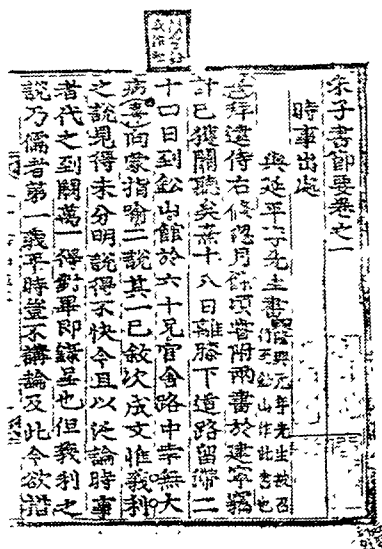 朱子書節要卷之一
時事出處
與延平李先生書隆興元年先生被召行至鉛山作此書也
熹拜違侍右倐忽月餘頃嘗附兩書於建寧竊
計已獲關聽矣熹十八日離膝下道路留滯二
十四日到鉛山館於六十兄官舍路中幸無大
病熹向蒙指喻二說其一已敍次成文惟義利
之說見得未分明說得不快今且以泛論時事
者代之到闕萬一得對畢即錄呈也但義利之
說乃儒者第一義平時豈不講論及此今欲